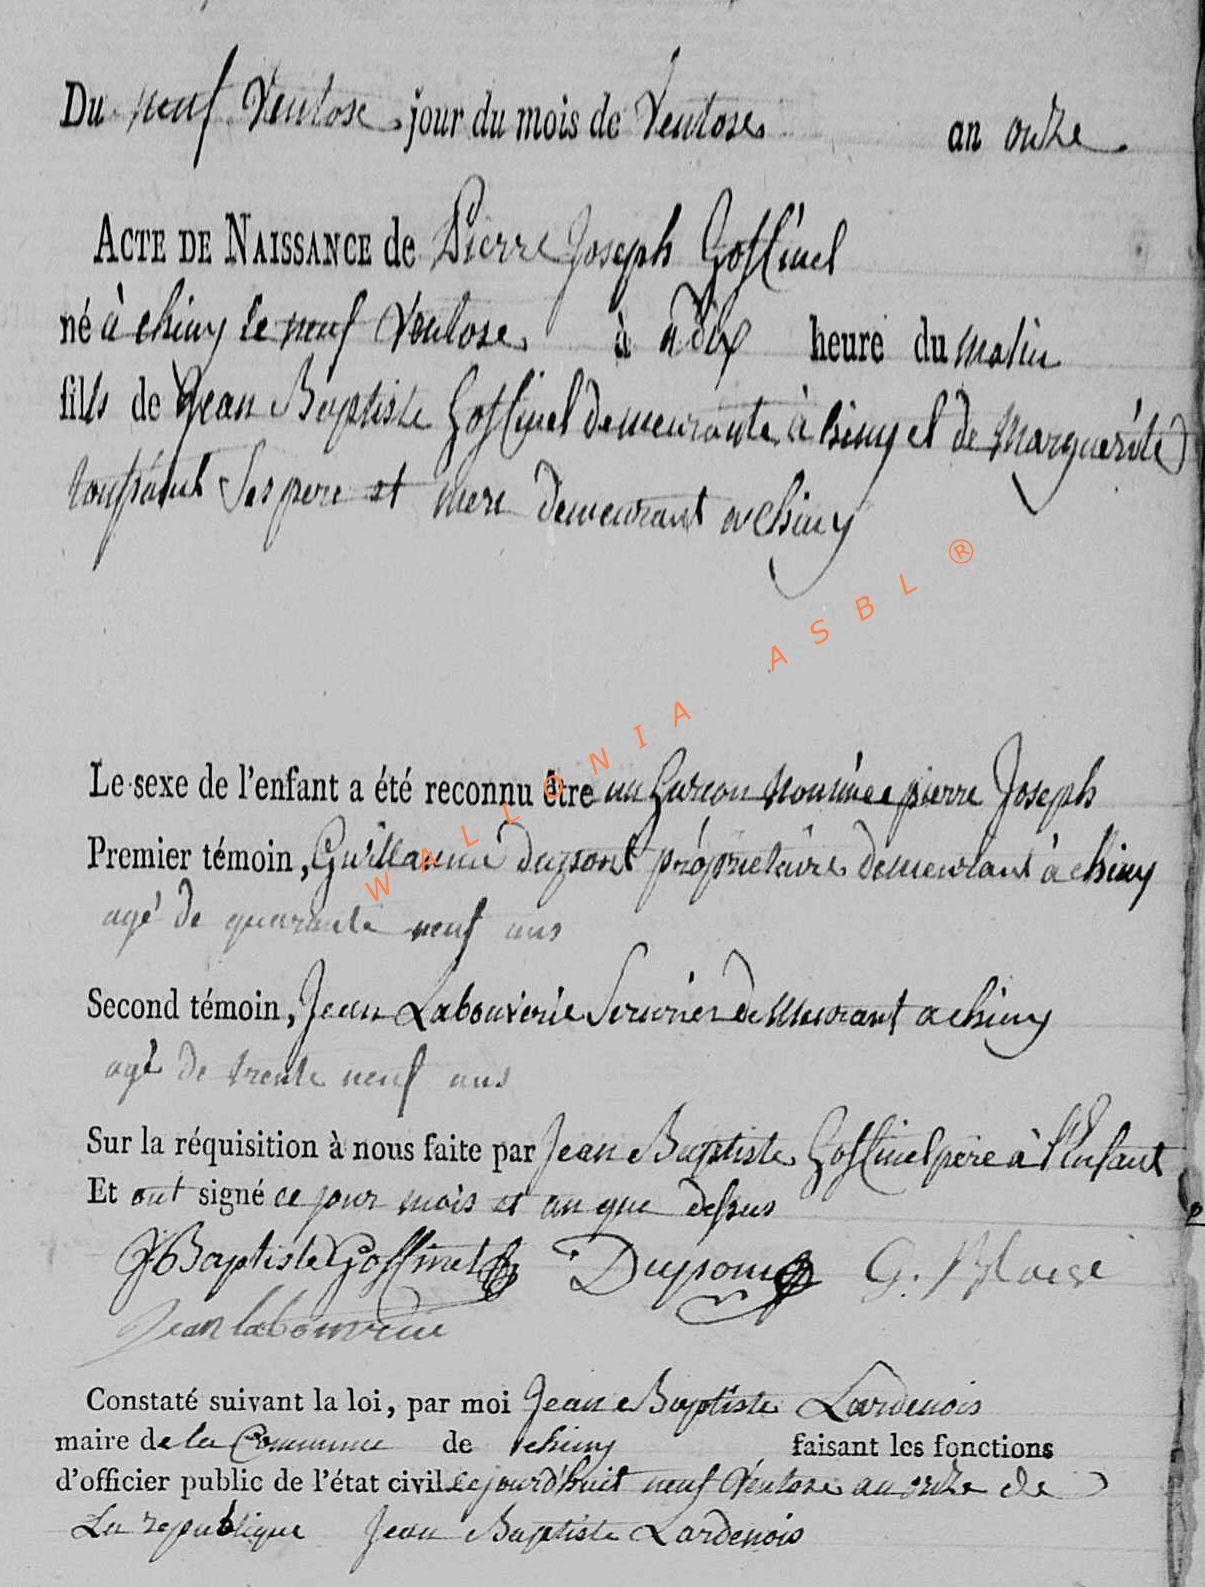 Du neuf Ventose jour du mois de Ventose an onze
ACTE DE NAISSANCE de Pierre Joseph Goffinet
né à chiny le neuf Ventose à a dix heure du matin
fills de Jean Baptiste Goffinet demeurante à chiny et de Marguerite
toussaint Ses pere et mere demeurant a chiny
Le sexe de l'enfant a été reconnu être un Garcon nommée pierre Joseph
Premier témoin, Guillaume dupont propriétaire demeurant à chiny
agé de quarante neuf ans
Second témoin, Jean Labouverie Serurier demeurant a chiny
agé de trente neuf ans
Sur la réquisition à nous faite par Jean Baptiste Goffinet père à l'Enfant
Et ont signé ce jour mois et an que dessus
JBaptiste Goffinet Dupont G.
Jean labouverie
Constaté suivant la loi, par moi Jean Baptiste Lardenois
maire de la Commune de chiny faisant les fonctions
d'officier public de l'état civil cejourd'huit neuf Ventose an onze de
La republique Jean Baptiste Lardenois
WALLONIA ASBL ®